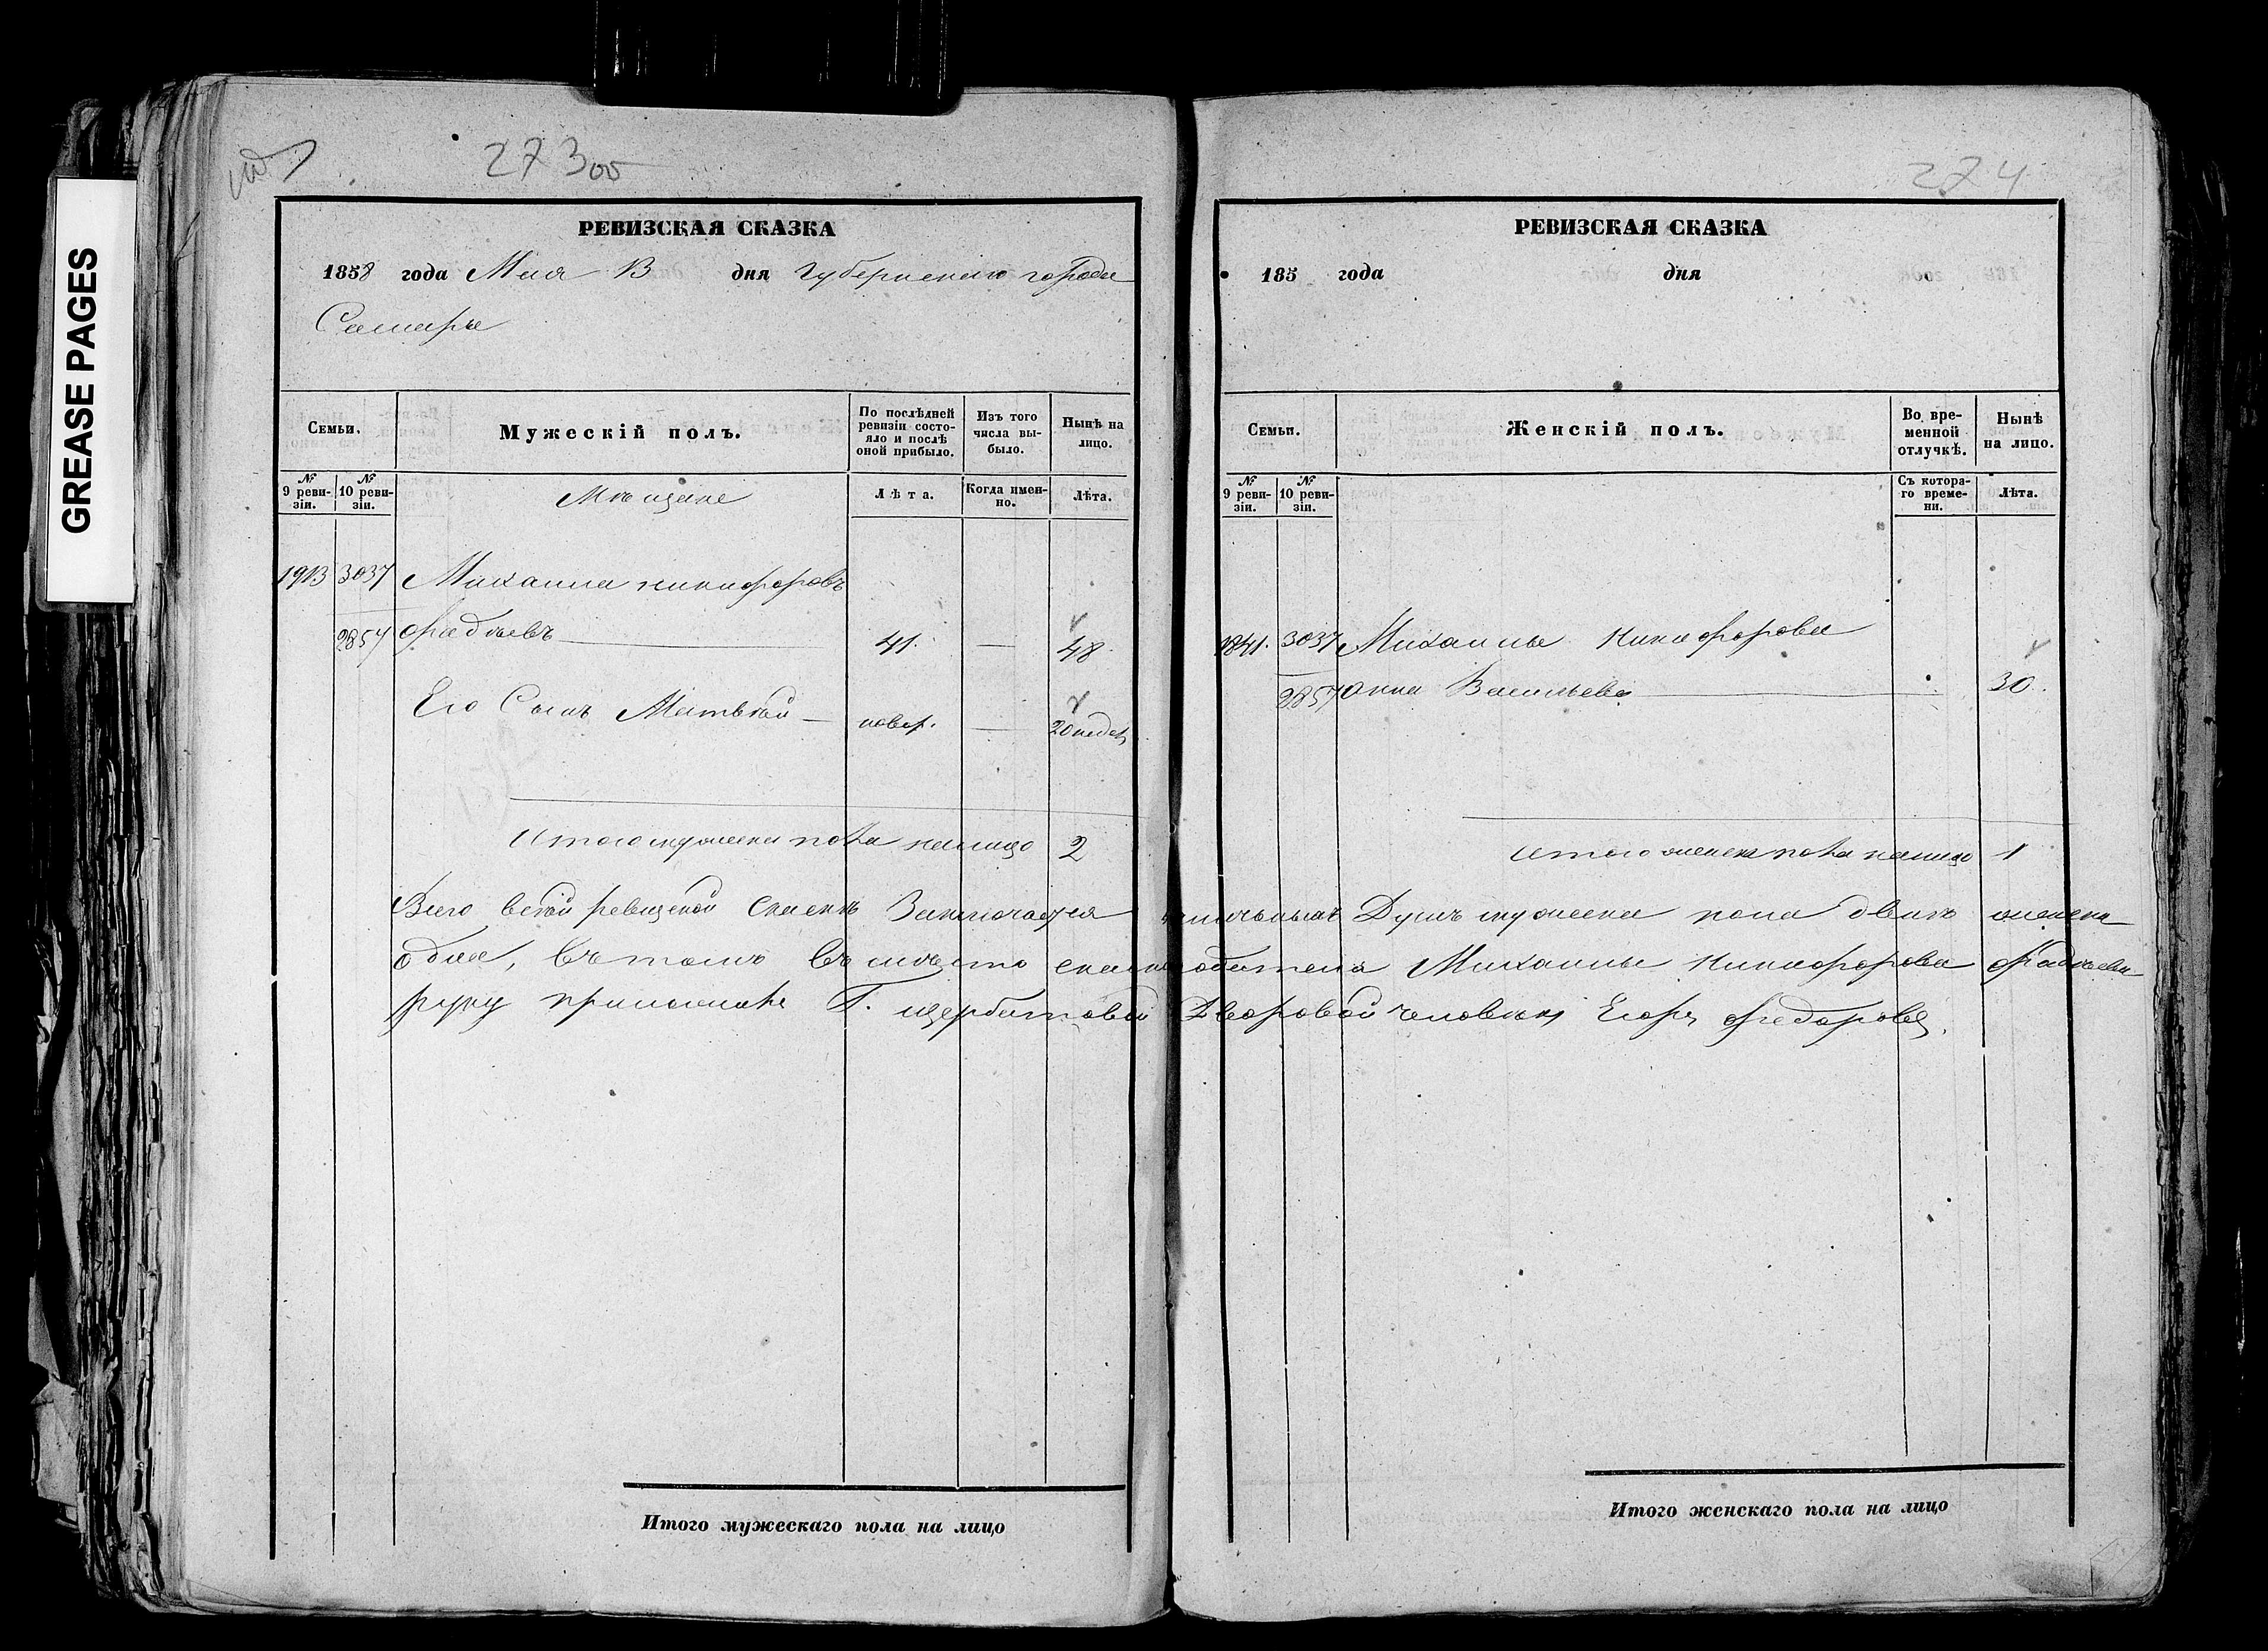 GREASE PAGES
273 об
РЕВИЗСКАЯ СКАЗКА
1858 года Мая 13 дня Губернскаго города
Самары
Семьи.
Мужескій полъ.
По послѣдней ревизіи состояло и послѣ оной прибыло.
Изъ того числа выбыло.
Нынѣ на лицо.
№ 9 ревизіи.
№ 10 ревизіи.
Мѣщане
Лѣта.
Когда именно.
Лѣта.
1913 3037 Михаила Никифоровъ
2857 Фадѣевъ 41. — 48
Его Сынъ Матвѣй — новор. — 20 недел
Итого мужеска пола налицо 2
274
РЕВИЗСКАЯ СКАЗКА
185 года дня
Семьи.
Женскій полъ.
Во временной отлучкѣ.
Нынѣ на лицо.
№ 9 ревизіи.
№ 10 ревизіи.
Съ котораго времени.
Лѣта.
1841. 3037 Михаилы Никифорова
2857 Анна Васильева 30.
Итого женска пола налицо 1
Всего всей ревизской сказкѣ Заключается наличныхъ Душъ мужеска пола двѣ женска
одна, въ томъ вместо сказкоподателя Михаилы Никифорова Фадѣева
руку приложилъ Г. Щербатовой Дворовой человекъ Егоръ Федоровъ.
Итого мужескаго пола на лицо
Итого женскаго пола на лицо